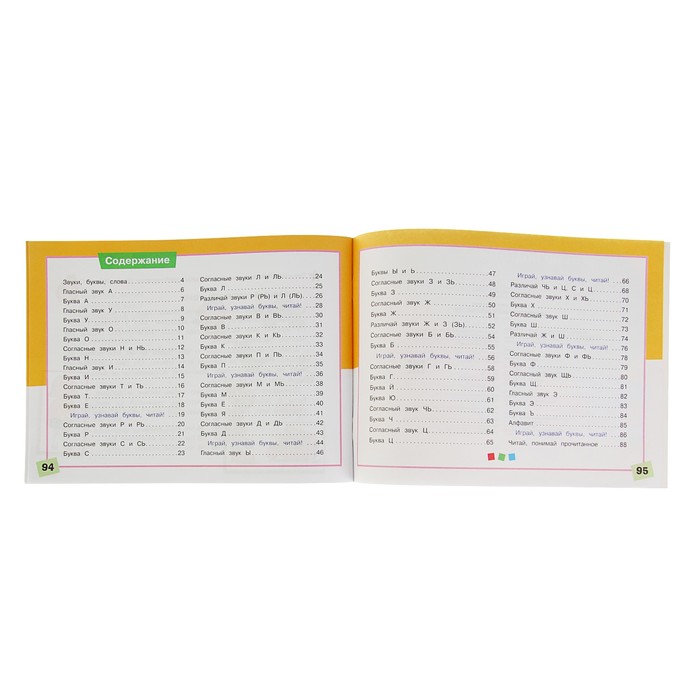 Содержание
Звуки, буквы, слова . . . . . . . . . . . . 4
Гласный звук А . . . . . . . . . . . . 6
Буква А . . . . . . . . . . . . 7
Гласный звук У . . . . . . . . . . . . 8
Буква У . . . . . . . . . . . . 9
Гласный звук О . . . . . . . . . . . . 10
Буква О . . . . . . . . . . . . 11
Согласные звуки Н и НЬ . . . . . . 12
Буква Н . . . . . . . . . . . . 13
Гласный звук И . . . . . . . . . . . . 14
Буква И . . . . . . . . . . . . 15
Согласные звуки Т и ТЬ . . . . . . 16
Буква Т . . . . . . . . . . . . 17
Буква Е . . . . . . . . . . . . 18
Играй, узнавай буквы, читай! . . . 19
Согласные звуки Р и РЬ . . . . . . 20
Буква Р . . . . . . . . . . . . 21
Согласные звуки С и СЬ . . . . . . 22
Буква С . . . . . . . . . . . . 23
Согласные звуки Л и ЛЬ . . . . . . 24
Буква Л . . . . . . . . . . . . 25
Различай звуки Р (РЬ) и Л (ЛЬ) . . . 26
Играй, узнавай буквы, читай! . . . 28
Согласные звуки В и ВЬ . . . . . . 30
Буква В . . . . . . . . . . . . 31
Согласные звуки К и КЬ . . . . . . 32
Буква К . . . . . . . . . . . . 33
Согласные звуки П и ПЬ . . . . . . 34
Буква П . . . . . . . . . . . . 35
Играй, узнавай буквы, читай! . . . 36
Согласные звуки М и МЬ . . . . . . 38
Буква М . . . . . . . . . . . . 39
Буква Ё . . . . . . . . . . . . 40
Буква Я . . . . . . . . . . . . 41
Согласные звуки Д и ДЬ . . . . . . 42
Буква Д . . . . . . . . . . . . 43
Играй, узнавай буквы, читай! . . . 44
Гласный звук Ы . . . . . . . . . . . . 46
94
Буквы Ы и Ь . . . . . . . . . . . . 47
Согласные звуки З и ЗЬ . . . . . . 48
Буква З . . . . . . . . . . . . 49
Согласный звук Ж . . . . . . . . . 50
Буква Ж . . . . . . . . . . . . 51
Различай звуки Ж и З (ЗЬ) . . . . . . 52
Согласные звуки Б и БЬ . . . . . . 54
Буква Б . . . . . . . . . . . . 55
Играй, узнавай буквы, читай! . . . 56
Согласные звуки Г и ГЬ . . . . . . 58
Буква Г . . . . . . . . . . . . 59
Буква Й . . . . . . . . . . . . 60
Буква Ю . . . . . . . . . . . . 61
Согласный звук ЧЬ . . . . . . . . . 62
Буква Ч . . . . . . . . . . . . 63
Согласный звук Ц . . . . . . . . . 64
Буква Ц . . . . . . . . . . . . 65
Играй, узнавай буквы, читай! . . . 66
Различай ЧЬ и Ц, С и Ц . . . . . . 68
Согласные звуки Х и ХЬ . . . . . . 70
Буква Х . . . . . . . . . . . . 71
Согласный звук Ш . . . . . . . . . 72
Буква Ш . . . . . . . . . . . . 73
Различай Ж и Ш . . . . . . . . . 74
Играй, узнавай буквы, читай! . . . 76
Согласные звуки Ф и ФЬ . . . . . . 78
Буква Ф . . . . . . . . . . . . 79
Согласный звук ЩЬ . . . . . . . . . 80
Буква Щ . . . . . . . . . . . . 81
Гласный звук Э . . . . . . . . . . . . 82
Буква Э . . . . . . . . . . . . 83
Буква Ъ . . . . . . . . . . . . 84
Алфавит . . . . . . . . . . . . 85
Играй, узнавай буквы, читай! . . . 86
Читай, понимай прочитанное . . . 88
95